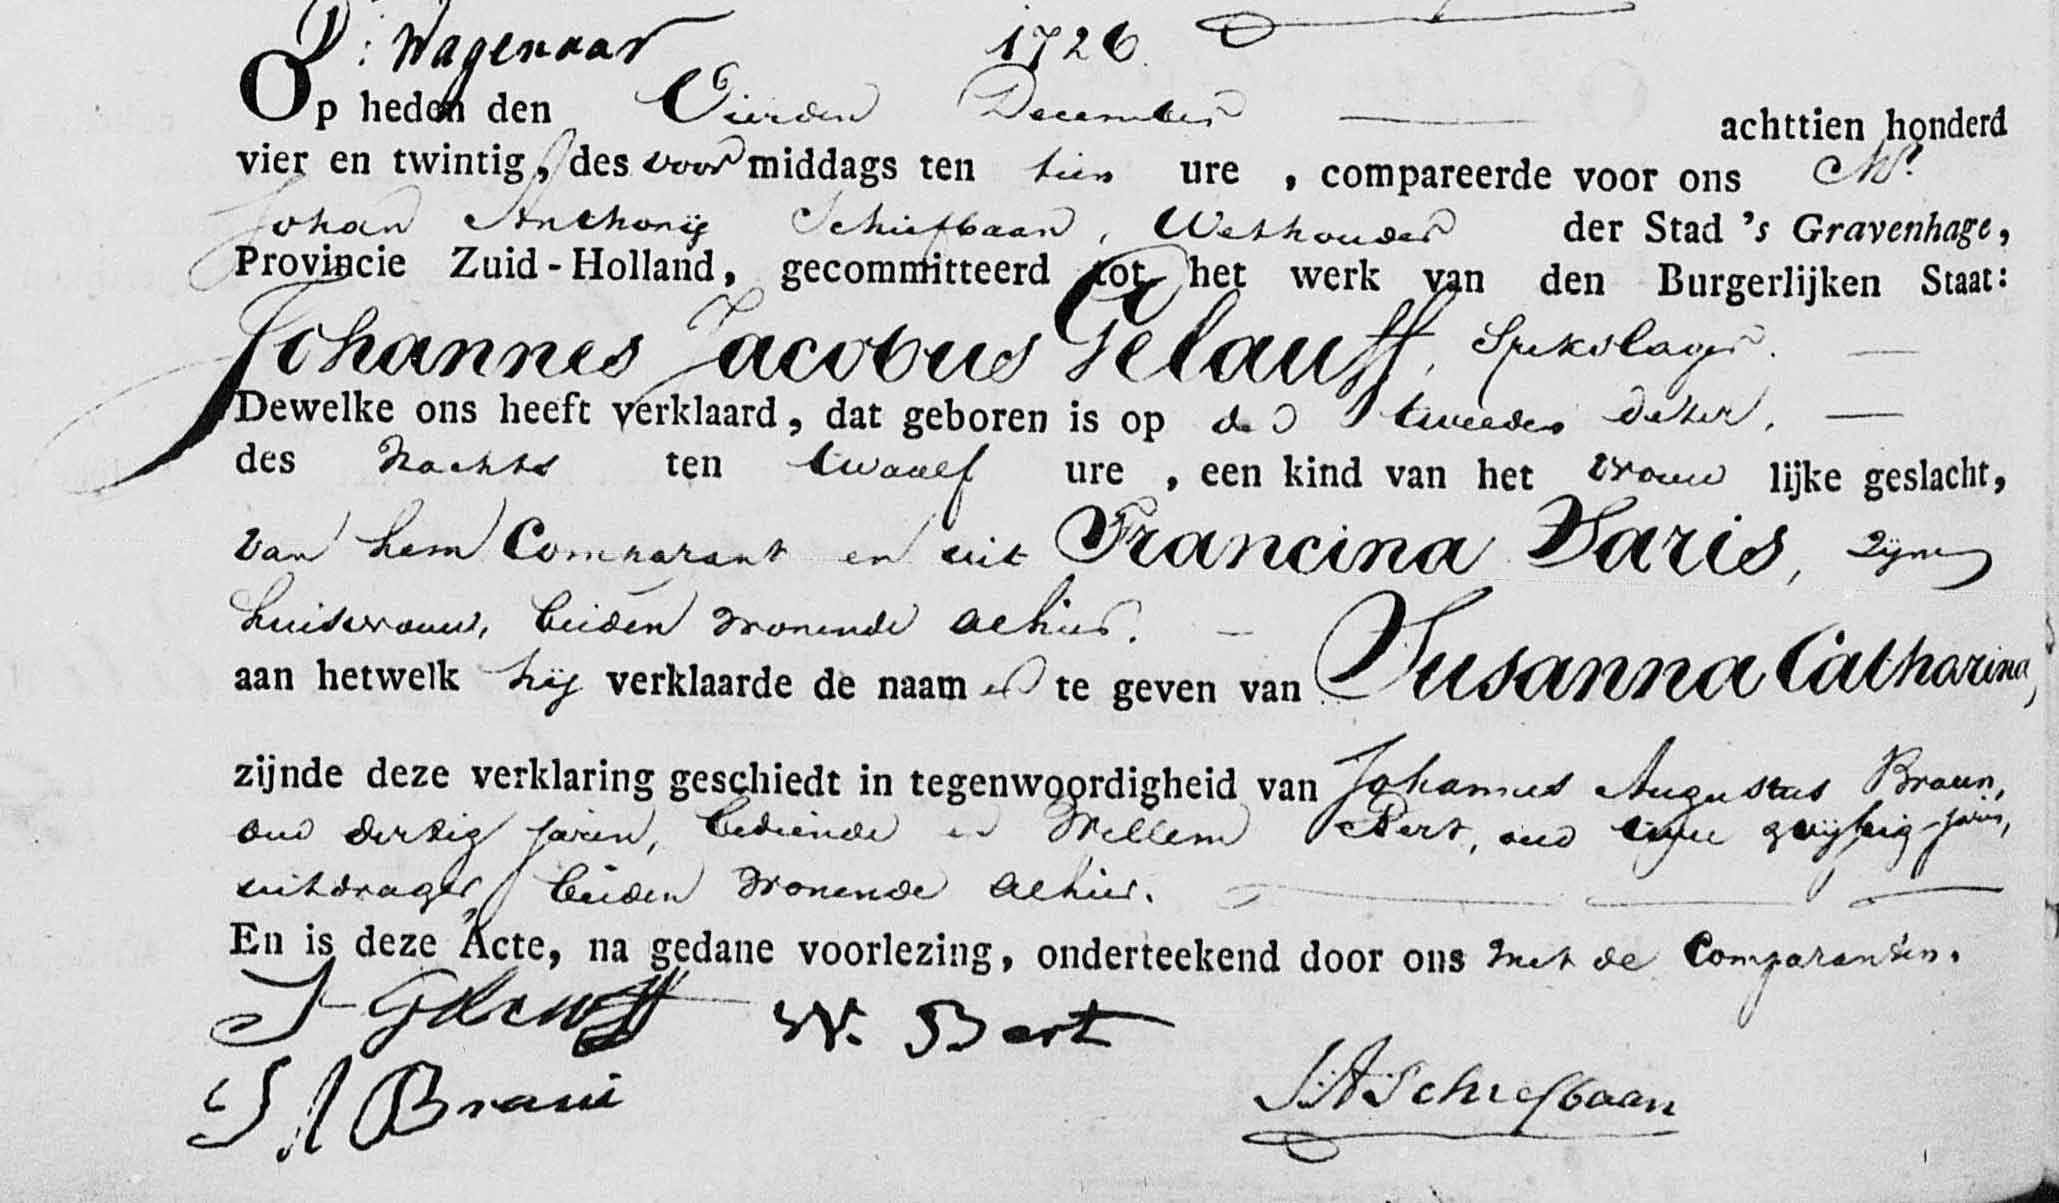 D: Wagenaar 1726.
Op heden den Vierden December achttien honderd
vier en twintig, des voor middags ten tien ure , compareerde voor ons Mr.
Johan Anthonij Schiefbaan, Wethouder der Stad 's Gravenhage,
Provincie Zuid-Holland, gecommitteerd tot het werk van den Burgerlijken Staat:
Johannes Jacobus Gelauff, Spekslager.
Dewelke ons heeft verklaard, dat geboren is op den tweeden dezer,
des Nachts ten twaalf ure , een kind van het vrouw lijke geslacht,
van hem Comparant en uit Francina Paris, zijne
huisvrouw, beiden wonende alhier.
aan hetwelk hij verklaarde de naam en te geven van Susanna Catharina,
zijnde deze verklaring geschiedt in tegenwoordigheid van Johannes Augustus Braun,
oud dertig jaren, bediende en Willem Bert, oud vijftig jaren,
uitdrager, beiden wonende alhier.
En is deze Acte, na gedane voorlezing, onderteekend door ons met de Comparanten.
J Gelauff W. Bert
J A Braun
J:A:Schiefbaan